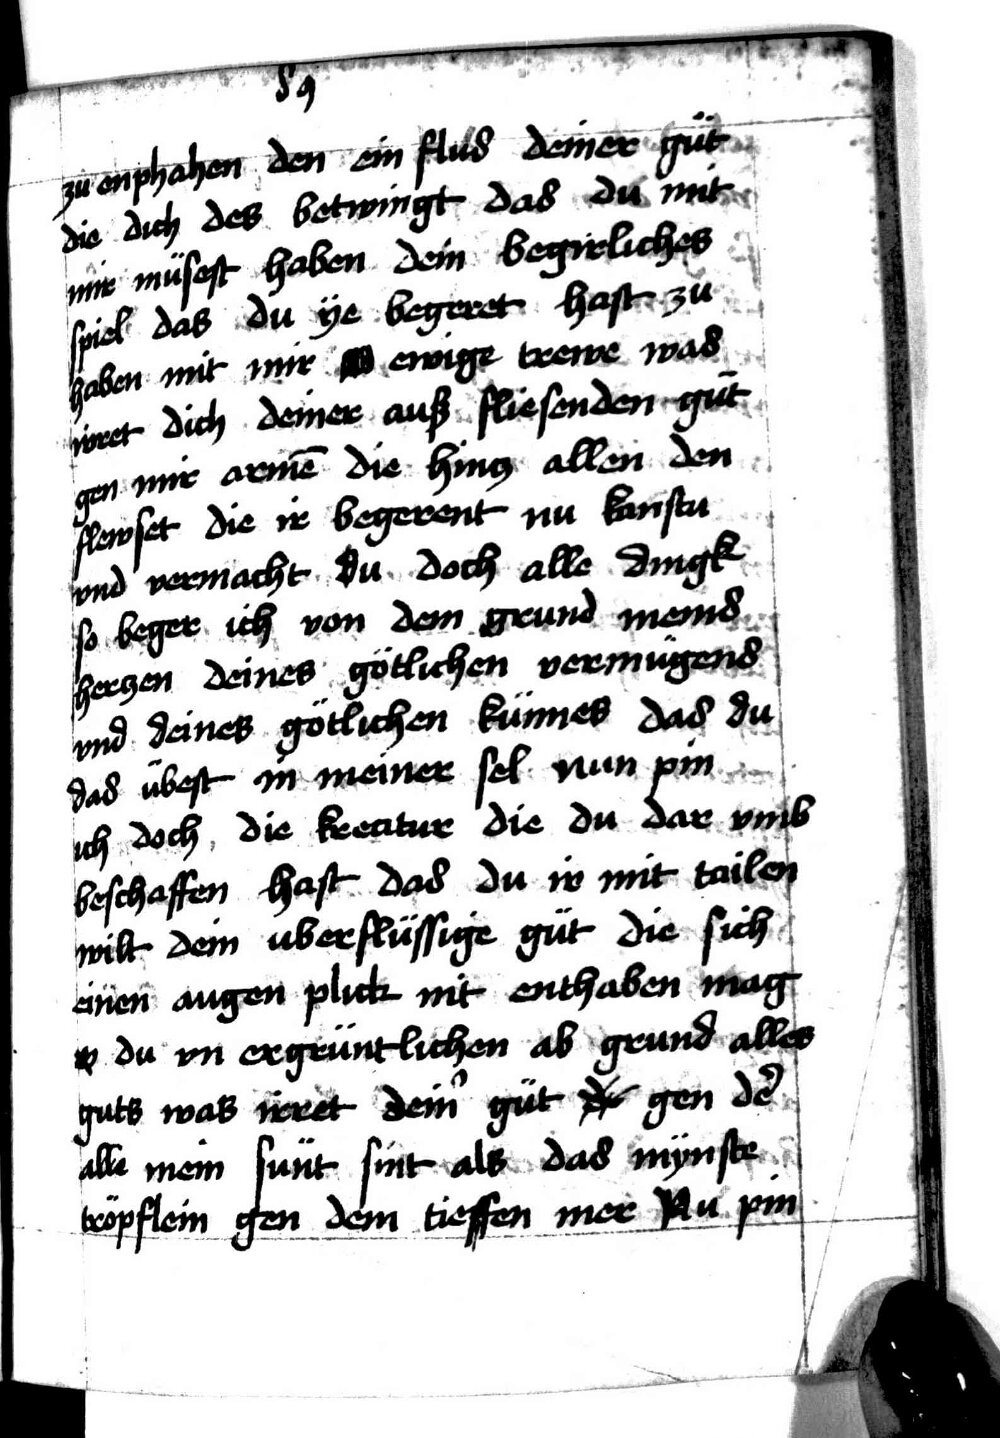 89
zu enphahen den ein flus deiner güt
die dich des betwingt das du mit
mir müsest haben dein begirliches
spiel das du ÿe begeret hast zu
haben mit mir ewige trewe was
irret dich deiner auß fliesenden güt
gen mir armē die hincz allen den
flewset die ir begerent nu kanstu
vnd vermacht du doch alle dingk
so beger ich von dem grund meins
herczen deines götlichen vermügens
vnd deines götlichen künnes das du
das übest in meiner sel nun pin
ich doch die kreatur die du dar vmb
beschaffen hast das du ir mit tailen
wilt dein uberflüssige güt die sich
einen augen plick nit enthaben mag
o du vn ergrüntlichen ab grund alles
guts was irret dein᾿ güt gen de᾿
alle mein sünt sint als das mÿnste
tröpflein gen dem tieffen mer Nu pin